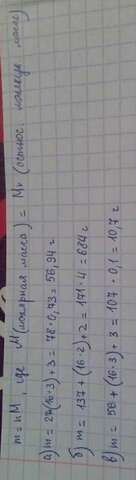 m = nM, где M(молярная масса) = Mr (относ. молекул. масса)
а) m = 27(16·3)+3 = 78·0,73 = 56,94 г
б) m = 137+(16·2)+2 = 171·4 = 684 г
в) m = 56+(16·3)+3 = 107·0,1 = 10,7 г